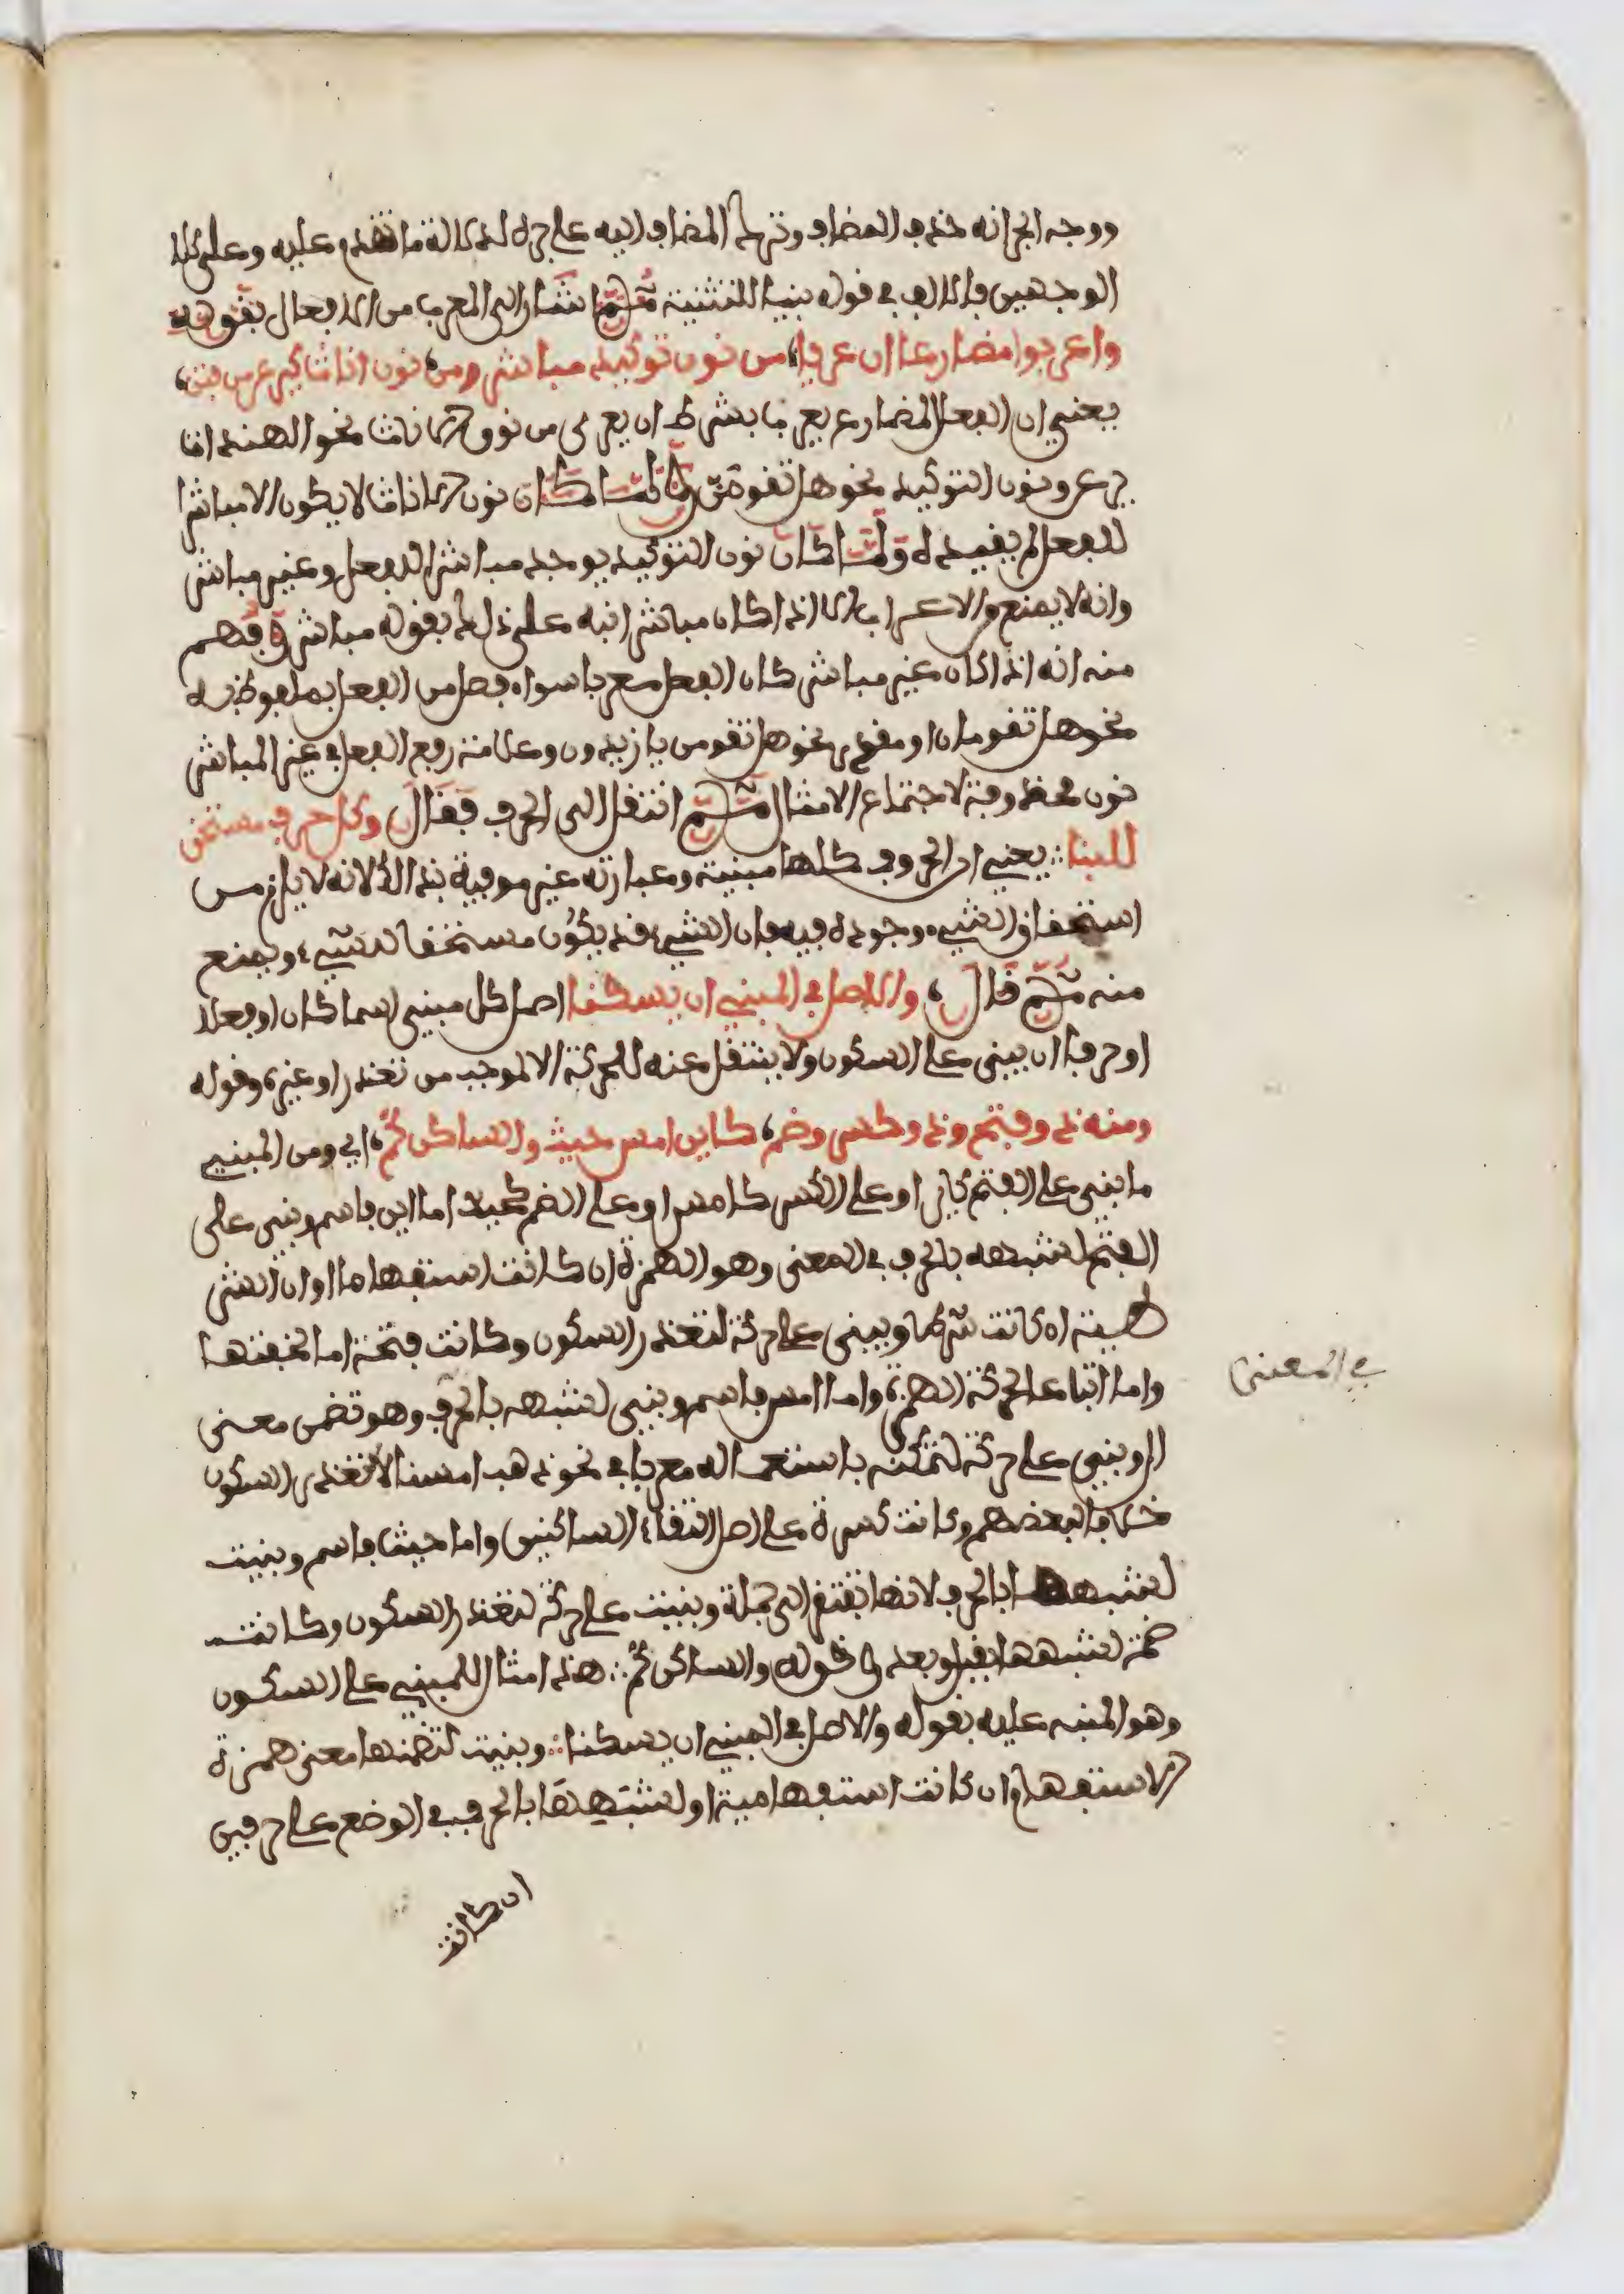 ووجه الجرانه حذف المضاف وترك المضاف اليه على جره لدلالة ما تقدم عليه وعلى كلا
الوجهين فالالف في قوله بنيا للتثنية ثم اشار الى المعرب من الافعال بقوله
واعربوا مضارعا ان عريا، من نون توكيد مباشر ومن، نون اناث كيرعن من فتن،
يعني ان الفعل المضارع يعرب بشرط ان يعرى من نون الاناث نحو الهندات
يرعن ونون التوكيد نحو هل تقومن ولما كان نون الاناث لا يكون الا مباشرا
للفعل لم يقيده ولما كان نون التوكيد يوجد مباشرا للفعل وغير مباشر
وانه لا يمنع الاعراب الا اذا كان مباشرا نبه على ذلك بقوله مباشر وفهم
منه انه اذا كان غير مباشر كان الفعل معربا سواء فصل من الفعل بملفوظ به
نحو هل تقومان او مقدر نحو هل تقومن يا زيدون وعلامة رفع الفعل في غير المباشر
نون محذوفة لاجتماع الامثال ثم انتقل الى الحرف فقال وكل حرف مستحق
للبنا يعني ان الحروف كلها مبنية وعبارته غير موفية بذالك لانه لا يلزم من
استحقاق الشيء وجوده فيه فان الشيء قد يكون مستحقا لشيء ويمنع
منه ثم قال، والاصل في المبني ان يسكنا اصل كل مبني اسما كان او فعلا
او حرفا ان يبنى على السكون ولا ينتقل عنه للحركة الا لموجب من تعذر او غيره وقوله
ومنه ذو فتح وذو كسر وضم، كاين امس حيث والساكن كم، اي ومن المبني
ما بني على الفتح كاين او على الكسر كامس او على الضم كحيث اما اين فاسم وبني على
الفتح لشبهه بالحرف في المعنى وهو الهمزة ان كانت استفهاما او ان الشر
طية ان كانت شرطا وبني على حركة لتعذر السكون وكانت فتحة اما لخفتها
واما اتباعا لحركة الهمزة واما امس فاسم وبني لشبهه بالحرف وهو تضمن معنى
في المعنى
ال وبني على حركة لتمكنه باستعماله معربا في نحو ذهب امسنا لا لتعذر السكون
خلافا لبعضهم وكانت كسرة على اصل التقاء الساكنين واما حيث فاسم وبنيت
لشبهها بالحرف لانها تفتقر الى جملة وبنيت على حركة لتعذر السكون وكانت
ضمة لشبهها بقبل وبعد وقوله والساكن كم هذا مثال للمبني على السكون
وهو المنبه عليه بقوله والاصل في المبني ان يسكنا وبنيت لتضمنها معنى همزة
الاستفهام ان كانت استفهامية او لشبهها بالحرف في الوضع على حرفين
ان كانت